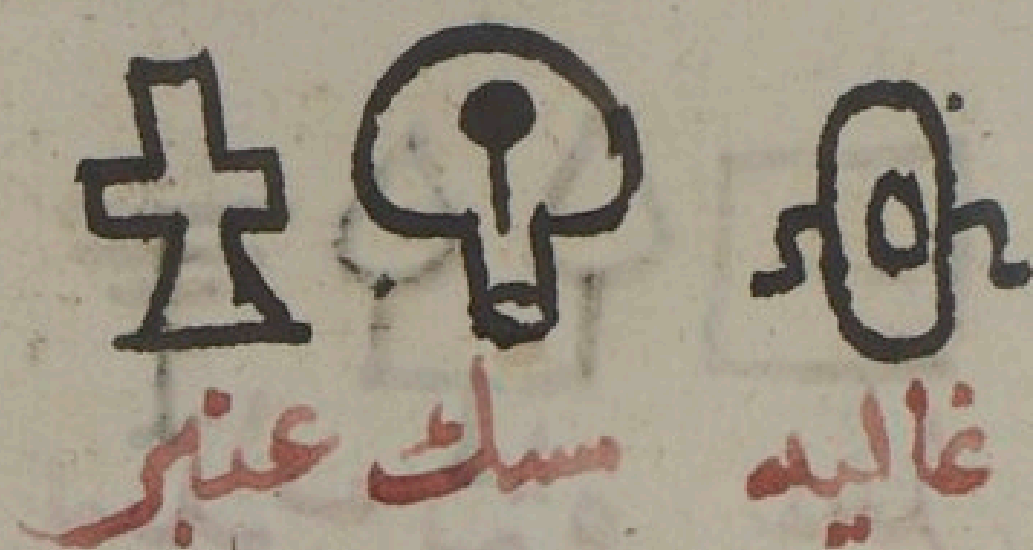 غاليه مسك عنبر